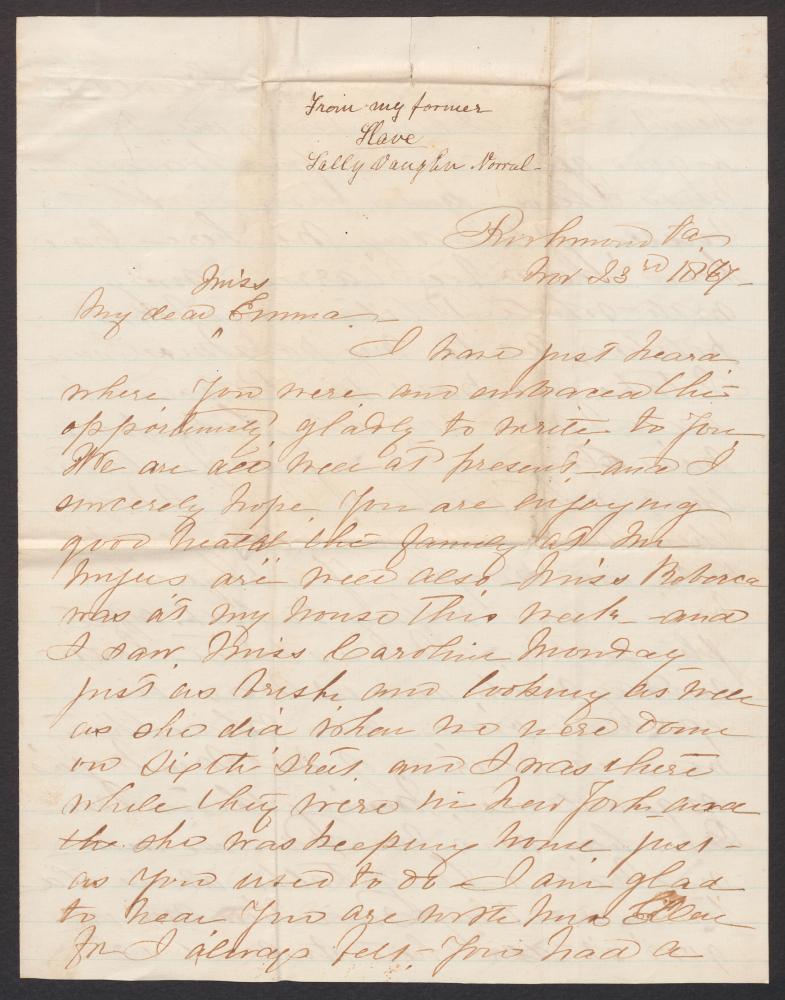 From my former
Slave
Sally Vaughn Norral -
Richmond Va
Nov 23rd 1867 -
Miss
My dear Emma -
I have just heard
where you were and embraced this
opportunity gladly to write to you
We are all well at present and I
sincerely hope you are enjoying
good health the family at Mr
Myers are well also Miss Rebecca
was at my house this week - and
I saw Miss Caroline Monday
just as brisk and looking as well
as she did when we were down
on Sixth Street and I was there
while they were in New York and
the she was keeping house just -
as you used to do - I am glad
to hear you are with Mrs Ellen
for I always felt - you had a